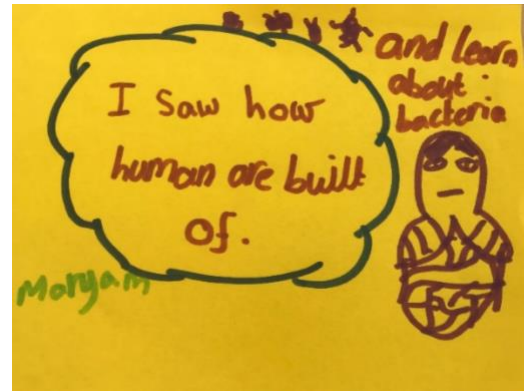 I saw how
human are built
of.
and learn
about
bacteria
Maryam